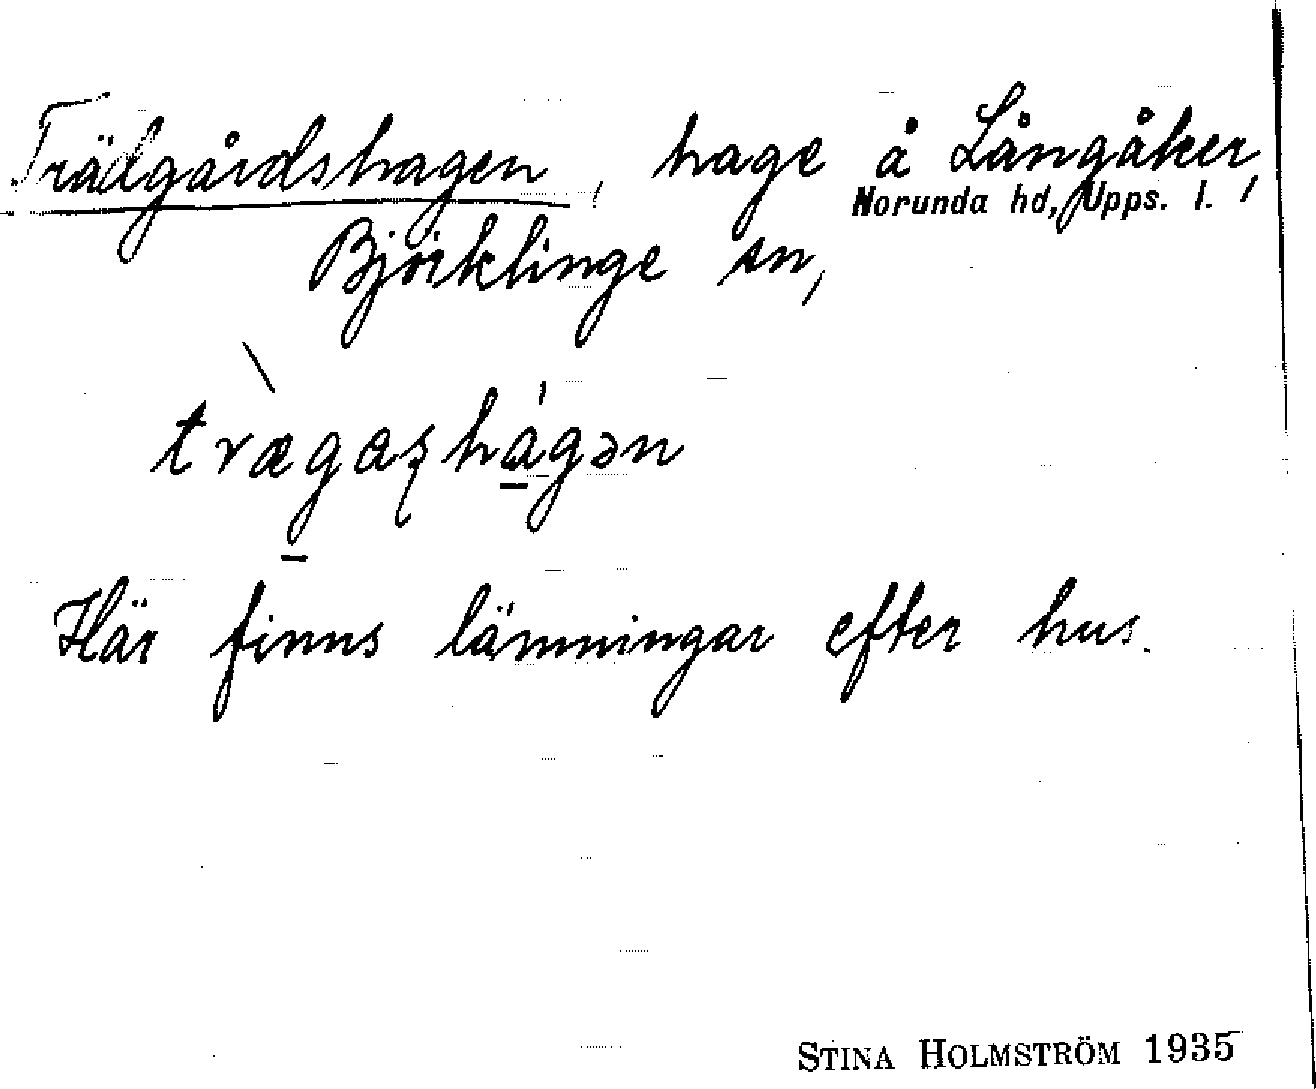 Trädgårdshagen, hage å Långåker,
Norunda hd, Upps. l.
Björklinge sn,
trægaʂhágən
Här finns lämningar efter hus.
STINA HOLMSTRÖM 1935